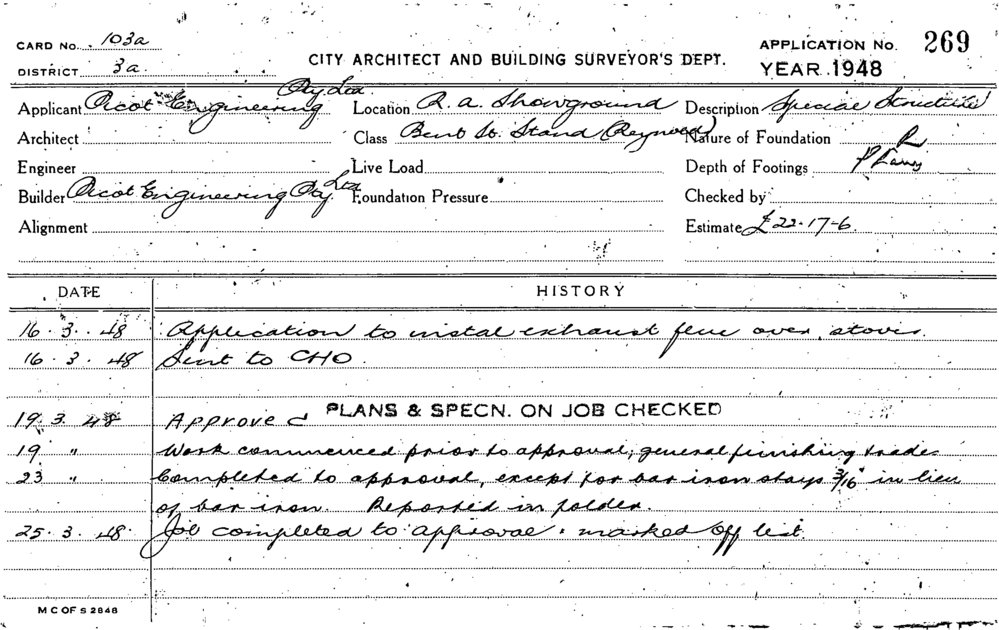 CARD No. 103a
DISTRICT 3a
CITY ARCHITECT AND BUILDING SURVEYOR'S DEPT.
APPLICATION No. 269
YEAR 1948
Applicant Picot Engineering Pty. Ltd. Location R. A. Showground Description Special Structure
Architect Class Bent St. Stand Nature of Foundation
Engineer Live Load Depth of Footings
Builder Picot Engineering Pty. Ltd Foundation Pressure Checked by
Alignment Estimate £22-17-6
DATE HISTORY
16.3.48 Application to instal exhaust flue over stoves.
16.3.48 Sent to CHO.
PLANS & SPECN. ON JOB CHECKED
19.3.48 Approved
19 " Work commenced prior to approval, general finishing trades
23 " Completed to approval, except for bar iron stays 3/16" in lieu
of bar iron. Reported in folder.
25.3.48. Job completed to approval. marked off list.
M C OF S 2848